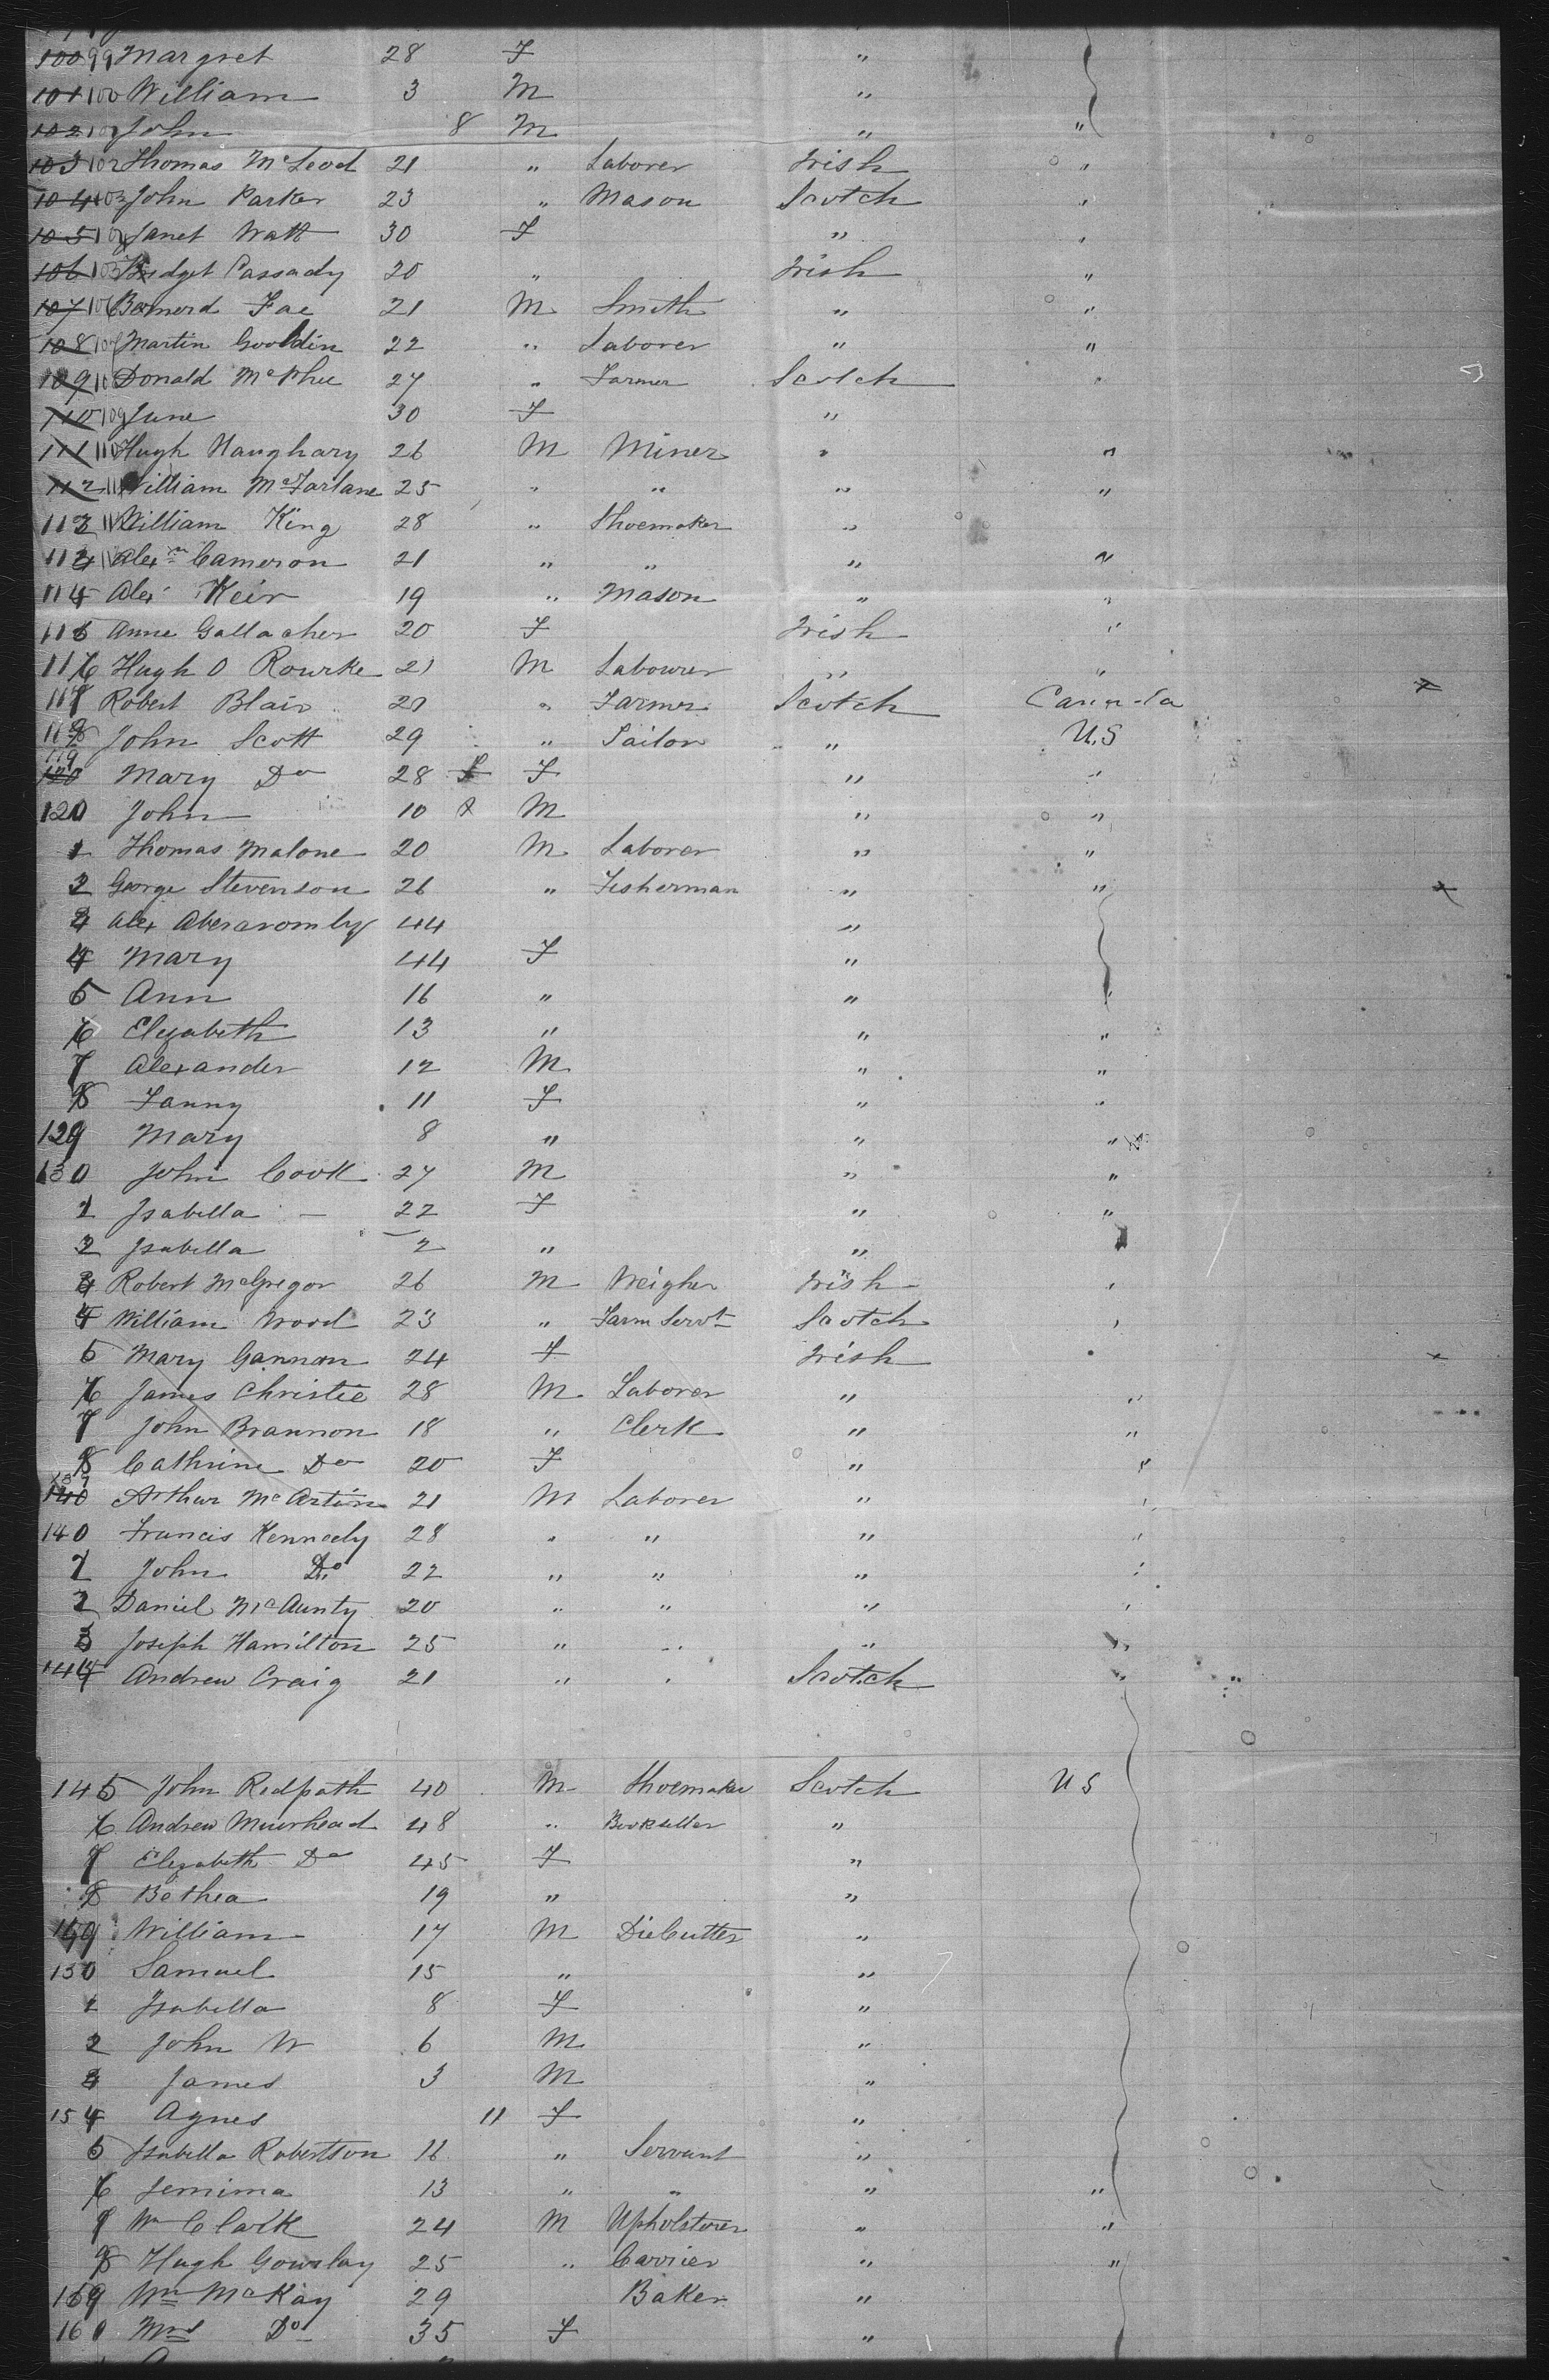 99 Margret 28 F "
100 William 3 M "
101 John 8 M " "
102 Thomas McLeod 21 " Laborer Irish "
103 John Parker 23 " Mason Scotch "
104 Janet Watt 30 F " "
105 Bridget Cassady 20 " Irish "
106 Bernerd Fae 21 M Smith " "
107 Martin Gooldin 22 " Laborer " "
108 Donald McPhee 27 " Farmer Scotch "
109 June 30 F "
110 Hugh Haughary 26 M Miner " "
111 William McFarlane 25 " " " "
112 William King 28 " Shoemaker "
113 Alexr Cameron 21 " " " "
114 Alex Keir 19 " Mason " "
115 Anne Gallacher 20 F Irish "
116 Hugh O Rourke 21 M Labourer " "
117 Robert Blair 21 " Farmer Scotch Canada
118 John Scott 29 " Sailor " U.S
119 Mary Do 28 F " "
120 John 10 M " "
1 Thomas Malone 20 M Laborer " "
2 George Stevenson 26 " Fisherman " "
3 Alex Abercromby 44 "
4 Mary 44 F "
5 Ann 16 " " "
6 Elizabeth 13 " " "
7 Alexander 12 M " "
8 Fanny 11 F " "
129 Mary 8 " " "
130 John Cook 27 M " "
1 Isabella 22 F " "
2 Isabella 2 " "
3 Robert McGregor 26 M Weigher Irish "
4 William Wood 23 " Farm Servt Scotch "
5 Mary Gannon 24 F Irish "
6 James Christie 28 M Laborer " "
7 John Brannon 18 " Clerk " "
8 Cathrine Do 20 F " "
139 Arthur McArtin 21 M Laborer " "
140 Francis Kennedy 28 " " " "
1 John Do 22 " " " "
2 Daniel McAunty 20 " " " "
3 Joseph Hamilton 25 " " " "
144 Andrew Craig 21 " " Scotch "
145 John Redpath 40 M Shoemaker Scotch U S
6 Andrew Muirhead 48 " Bookseller "
7 Elizabeth Do 45 F "
8 Bethea 19 " "
149 William 17 M Die Cutter "
150 Samuel 15 " "
1 Isabella 8 F "
2 John W 6 M "
3 James 3 M "
154 Agnes 11 F "
5 Isabella Robertson 16 " Servant "
6 Jemima 13 " " " "
7 Wm Clark 24 M Upholsterer " "
8 Hugh Gourlay 25 " Carrier " "
159 Wm McKay 29 Baker "
160 Mrs Do 35 F "